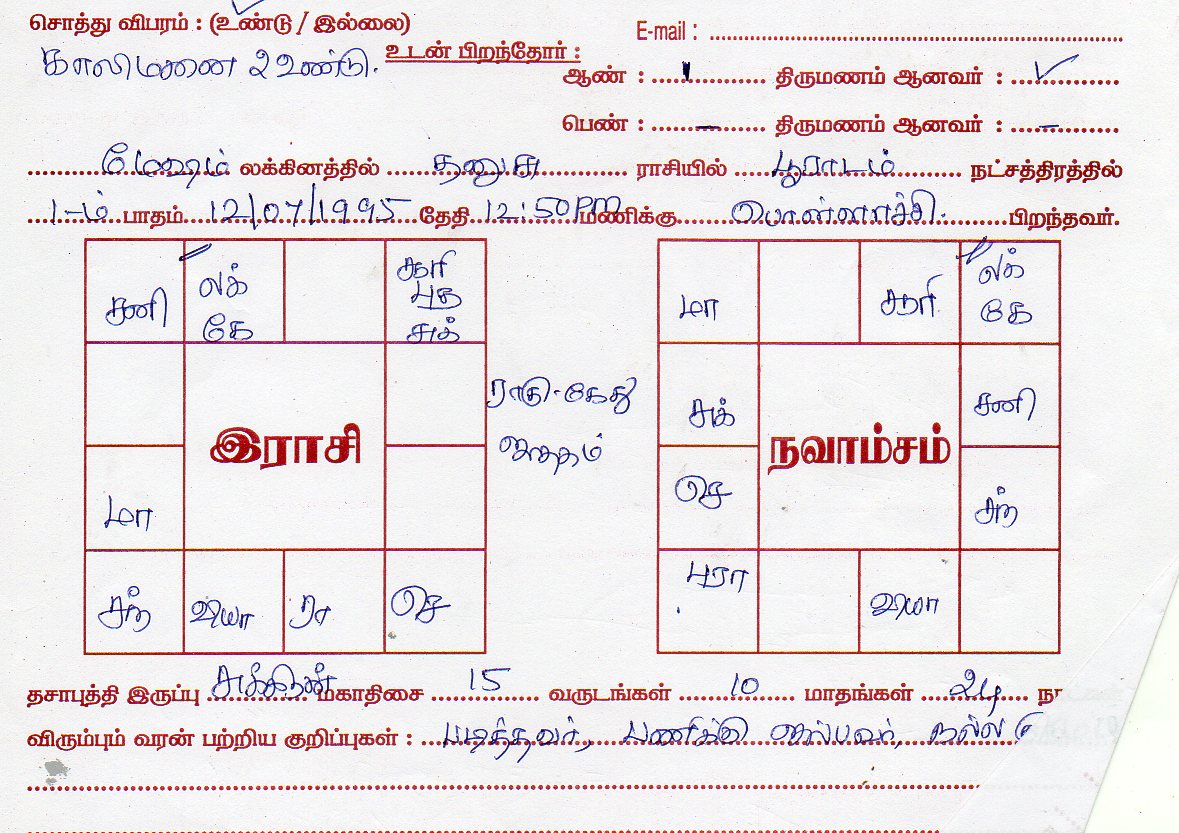 சொத்து விபரம் : (உண்டு / இல்லை)
E-mail :
காலிமனை 2 உண்டு.
உடன் பிறந்தோர் :
ஆண் : 1 திருமணம் ஆனவர் : ✓
பெண் : – திருமணம் ஆனவர் : –
மேஷம் லக்கினத்தில் தனுசு ராசியில் பூராடம் நட்சத்திரத்தில்
1-ம் பாதம் 12/07/1995 தேதி 12:50PM மணிக்கு பிறந்தவர்.
சனி லக் சூரி
கே புத
சுக்
மா
இராசி
சந் வியா ரா செ
ராகு-கேது
ஜாதகம்
மா சூரி லக்
கே
சுக் சனி
செ சந்
நவாம்சம்
வியா
தசாபுத்தி இருப்பு சுக்கிரன் மகாதிசை 15 வருடங்கள் 10 மாதங்கள் 24 நா
விரும்பும் வரன் பற்றிய குறிப்புகள் : படித்தவர், பணிக்கு செல்பவர், நல்ல